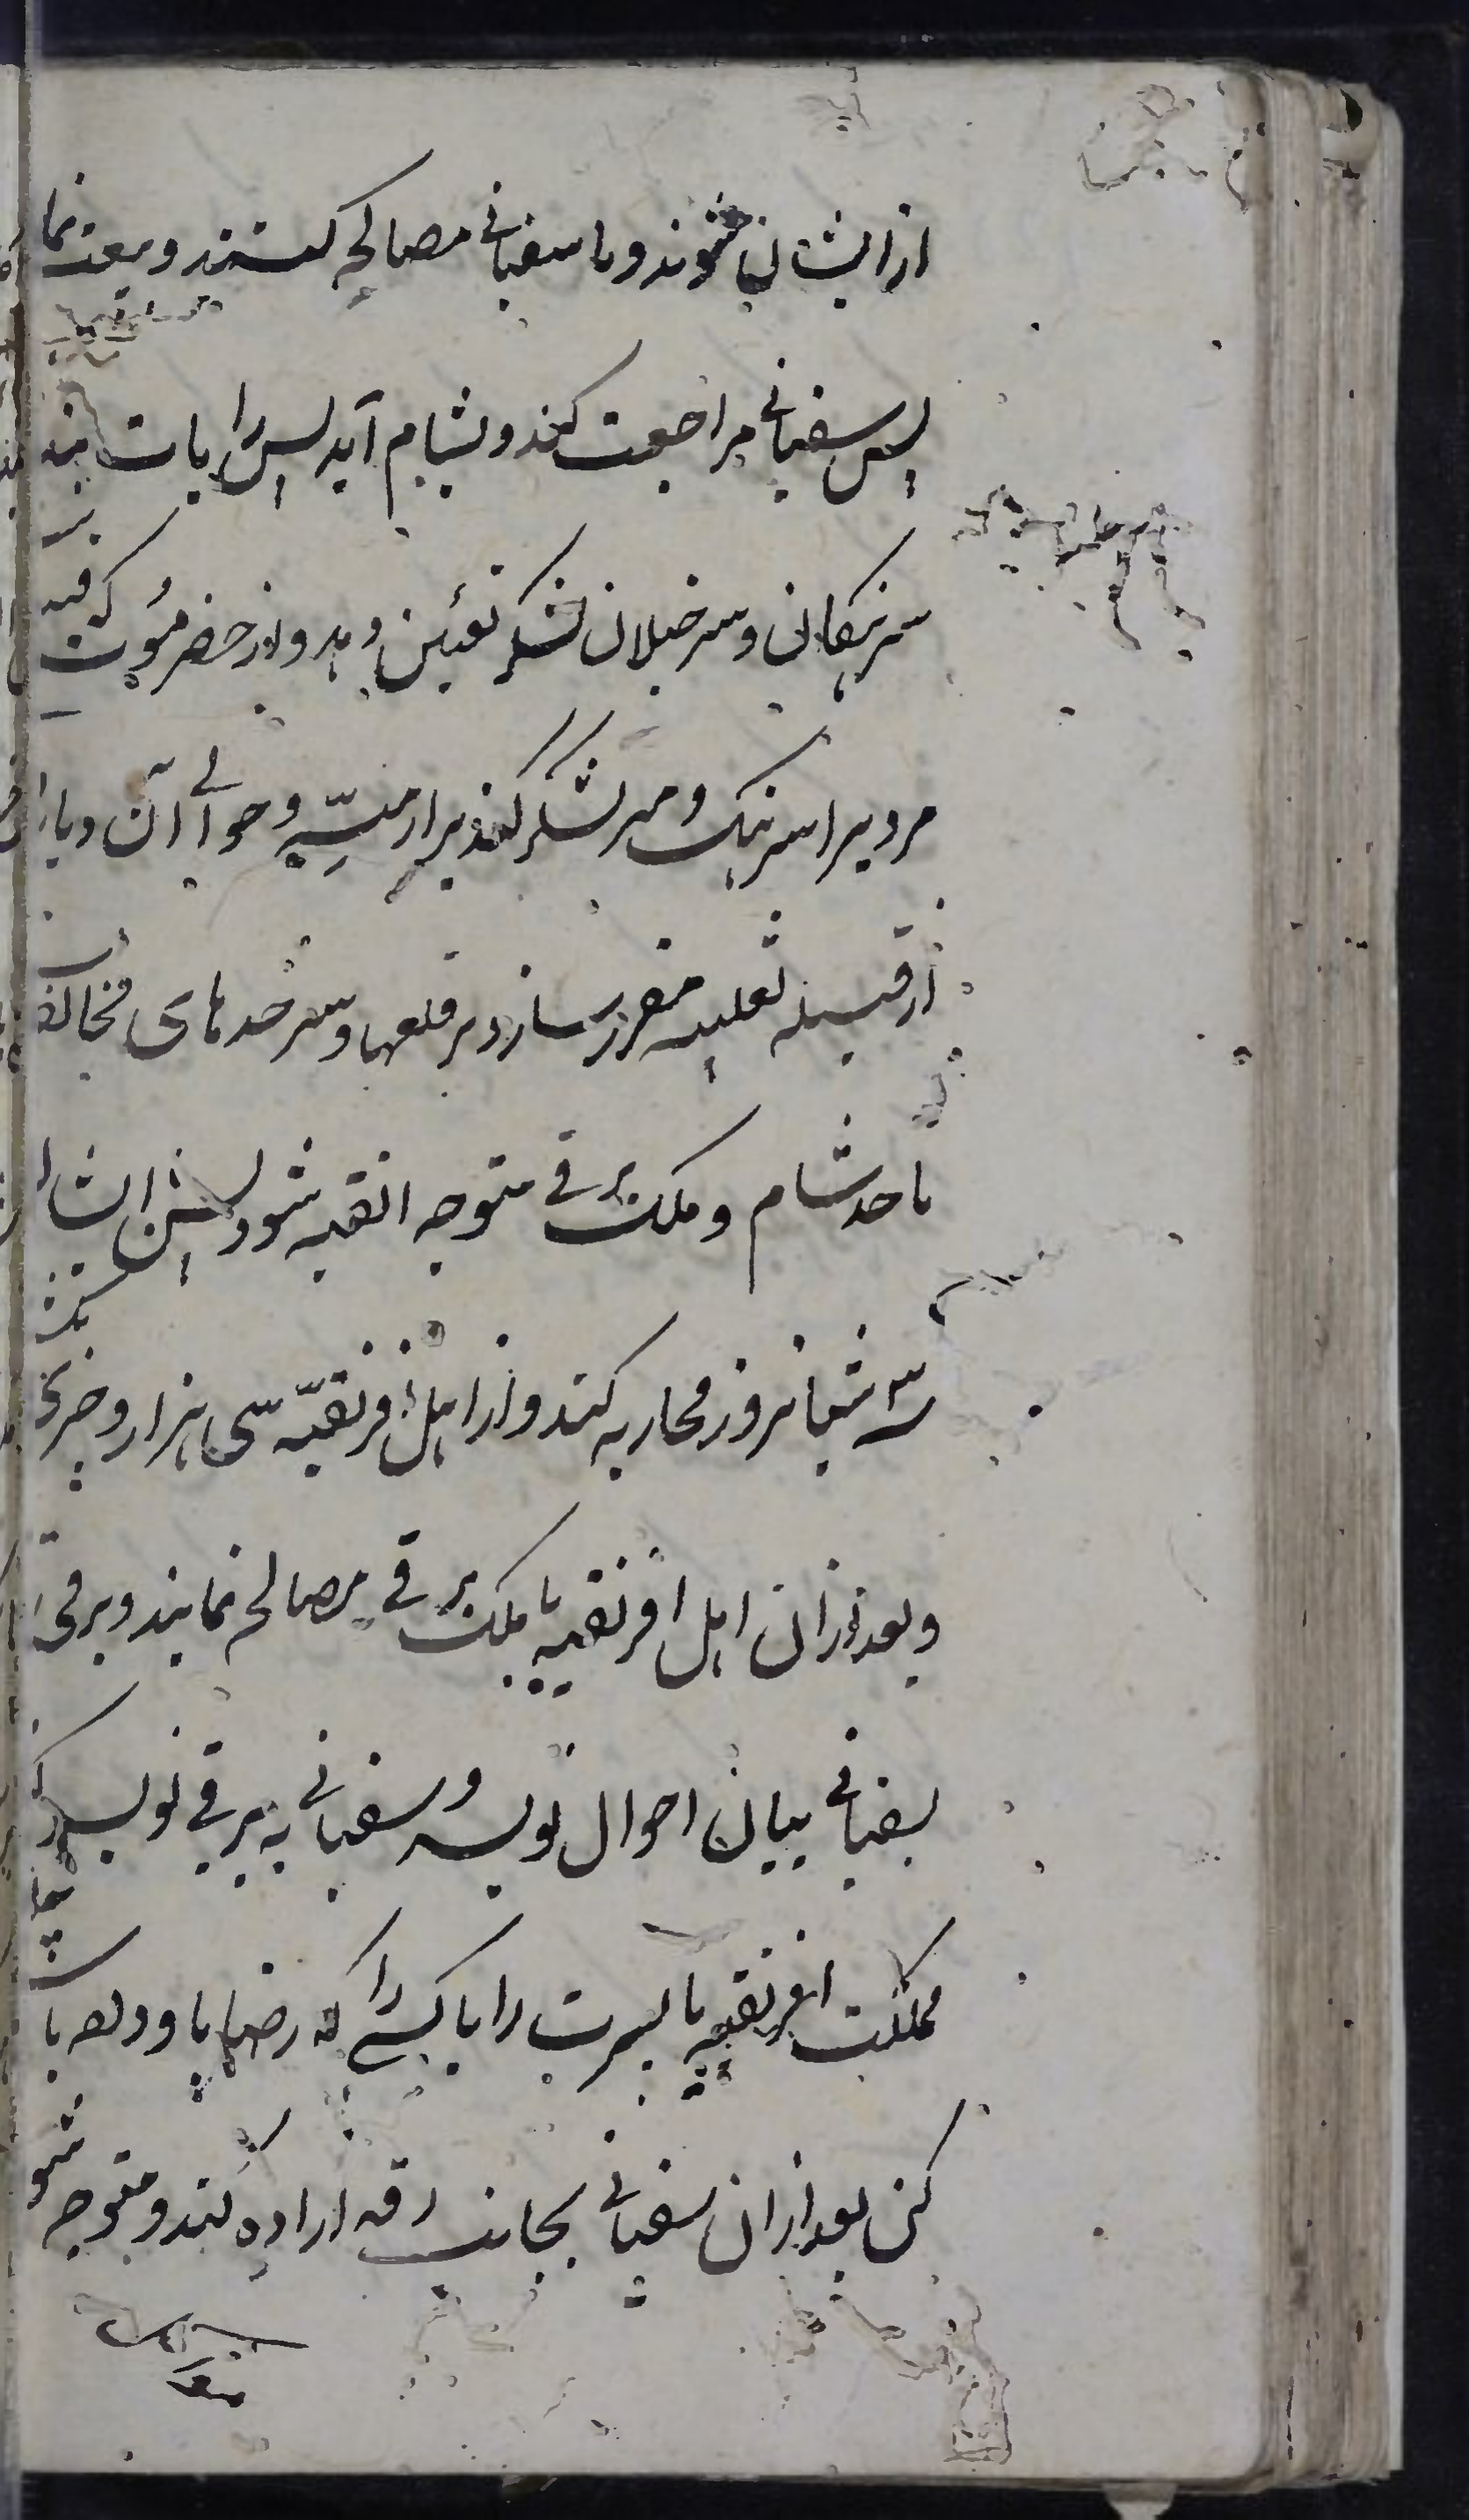 از ایشان شوند و با سفیانی مصالحه کنند و بیعت نما
پس سفیانی مراجعت کند و بشام آید پس رایات بندد
سرهنکان و سرخیلان لشکر تعیین دهد و از حضرموت
مردیرا سرهنک و سر لشکر کند بر ارمنیّه و حوالی آن دیار
از قبیله ثعلبه مقرر سازد بر قلعها و سرحدهای مخالف
تا حد شام و ملک برقی متوجه افریقیه شود پس ایشان
سه شبانروز محاربه کنند و از اهل افریقیّه سی هزار و چیزی
و بعد از آن اهل افریقیه با ملک برقی مصالحه نمایند و برقی
بسفیانی بیان احوال نویسد و سفیانی به برقی نویسد که
مملکت افریقیه با پسرت را یا کسی را که رضا باو دهد با
کن بعد از آن سفیانی بجانب رقه اراده کند و متوجه شو